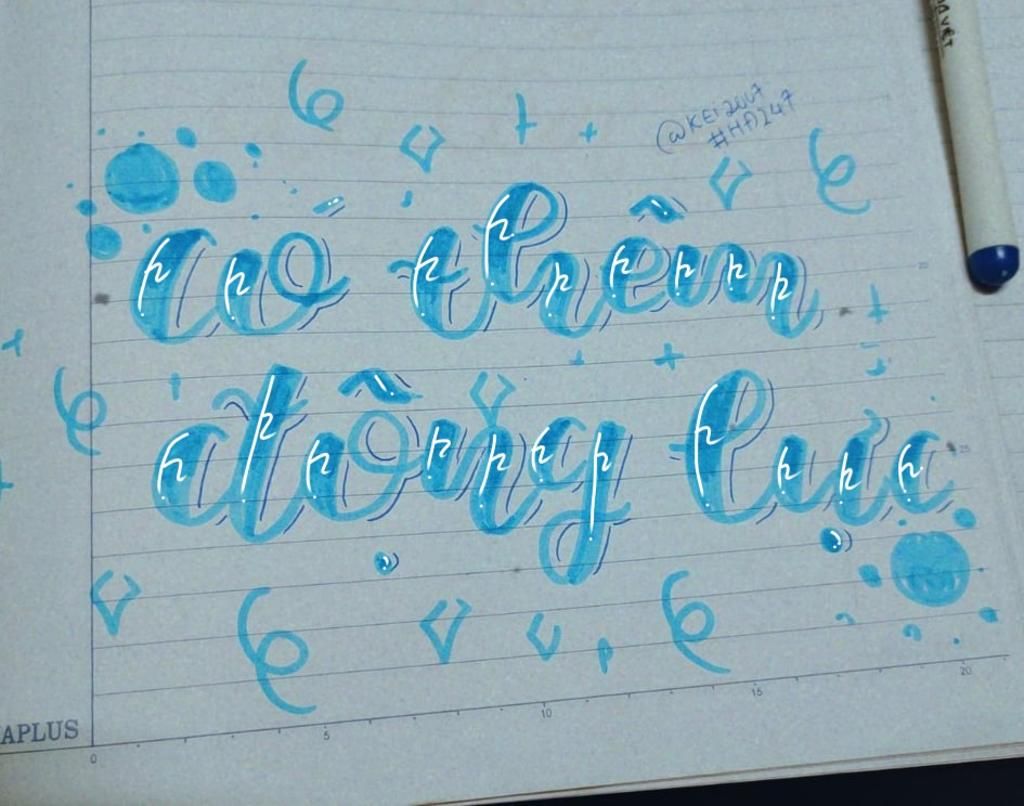 @KEI2007
#HA247
có thêm
động lực
APLUS
0 5 10 15 20
25